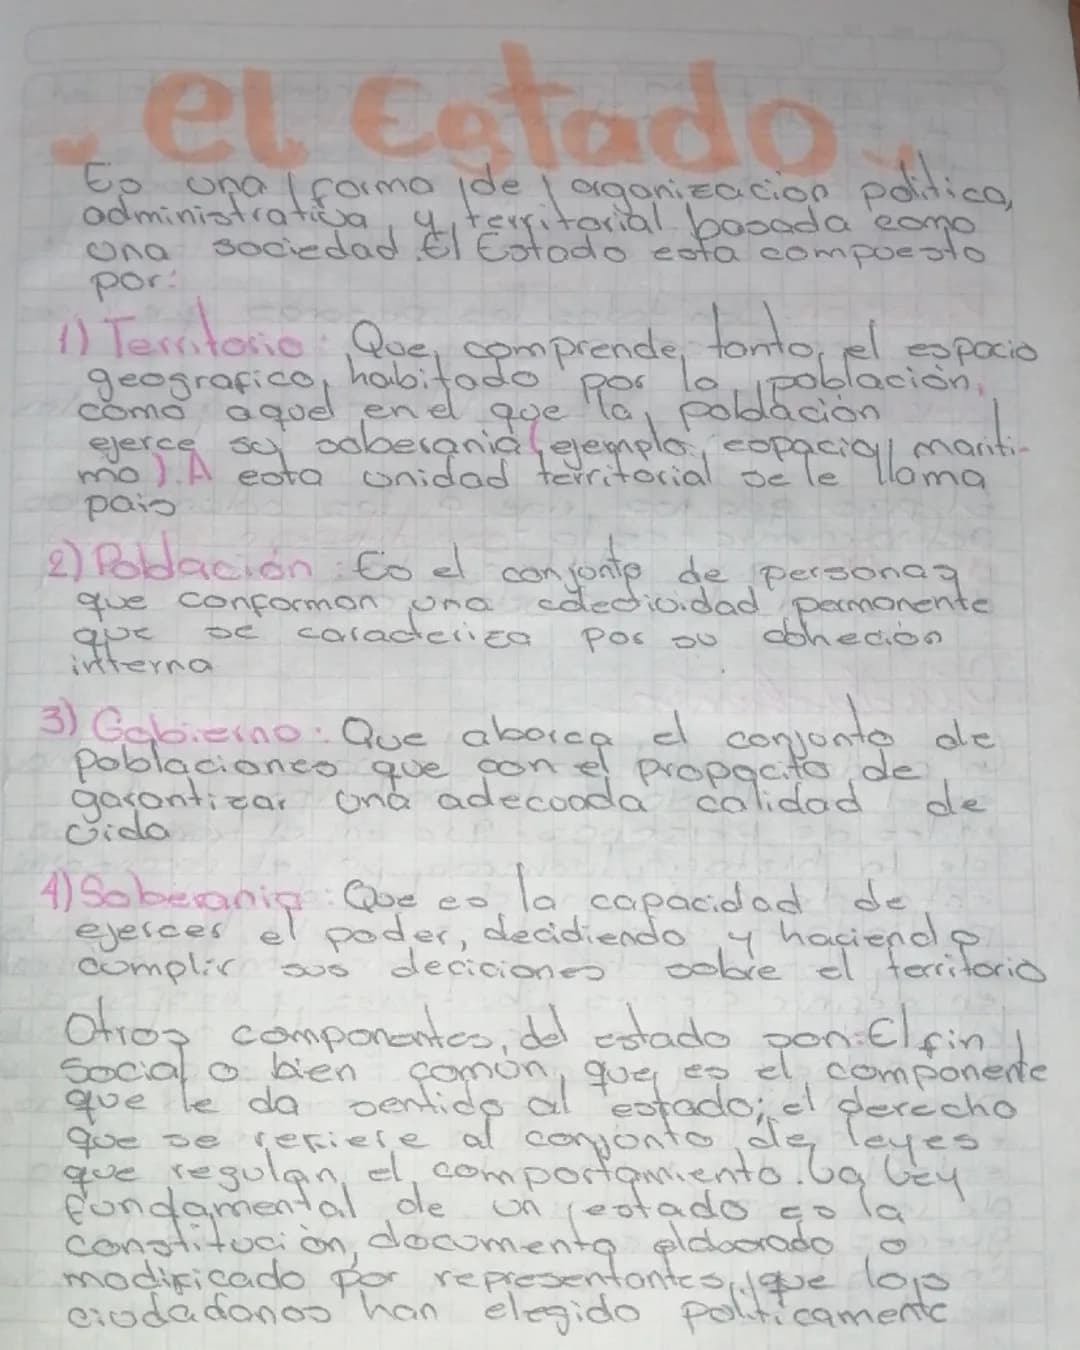 el Estado
Es una forma de organizacion politica,
administrativa y territorial basada como
una sociedad. El Estado esta compuesto
por:
1) Territorio: Que comprende, tanto, el espacio
geografico, habitado por la población,
como aquel en el que la población
ejerce su soberania (ejemplo, espacial mariti-
mo). A esta unidad territorial se le llama
pais
2) Población: Es el conjunto de personas
que conforman una colectividad permanente
que se caracteriza por su cohecion
interna
3) Gobierno: Que aborca el conjunto de
Poblaciones que con el propocito de
garantizar una adecuada calidad de
vida
4) Soberania: Que es la capacidad de
ejercer el poder, decidiendo y haciendo
cumplir sus deciciones sobre el territorio
Otros componentes, del estado son: El fin
Social o bien común, que es el componente
que le da sentido al estado; el derecho
que se refiere al conjunto de leyes
que regulan el comportamiento. La Ley
fundamental de un estado es la
constitucion, documento elaborado o
modificado por representantes, que los
ciudadanos han elegido politicamente